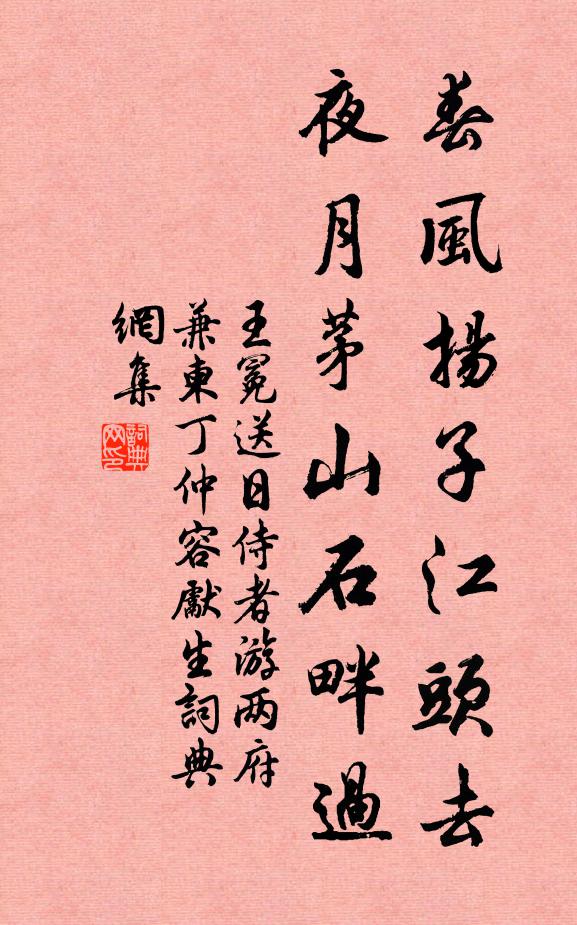 春風揚子江頭去
夜月茅山石畔過
王冕送日侍者游两府
兼柬丁仲容獻生詞典
網集
詞典
网印